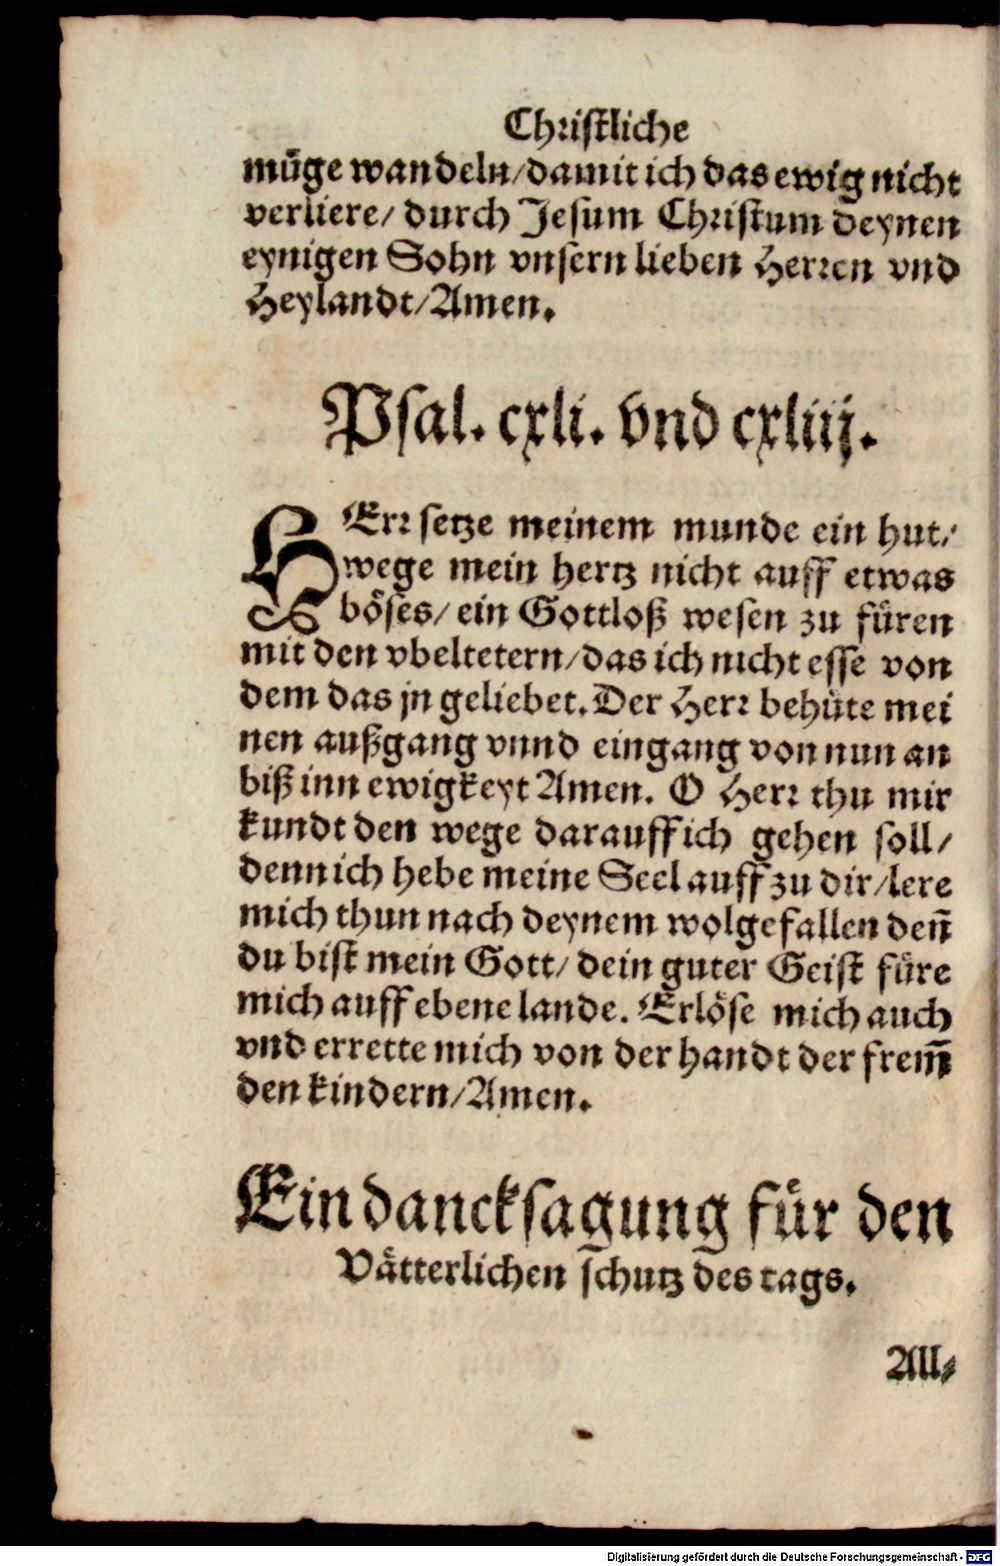 Christliche
müge wandeln/damit ich das ewig nicht
verliere/ durch Jesum Christum deynen
eynigen Sohn vnsern lieben Herren vnd
Heylandt/Amen.
Psal. cxli. vnd cxliij.
HErr setze meinem munde ein hut/
wege mein hertz nicht auff etwas
böses/ ein Gottloß wesen zu füren
mit den vbeltetern/das ich nicht esse von
dem das jn geliebet. Der Herr behüte mei
nen außgang vnnd eingang von nun an
biß inn ewigkeyt Amen. O Herr thu mir
kundt den wege darauff ich gehen soll/
denn ich hebe meine Seel auff zu dir/lere
mich thun nach deynem wolgefallen deñ
du bist mein Gott/ dein guter Geist füre
mich auff ebene lande. Erlöse mich auch
vnd errette mich von der handt der frem̃
den kindern/Amen.
Ein dancksagung für den
Vätterlichen schutz des tags.
All⸗
Digitalisierung gefördert durch die Deutsche Forschungsgemeinschaft - DFG